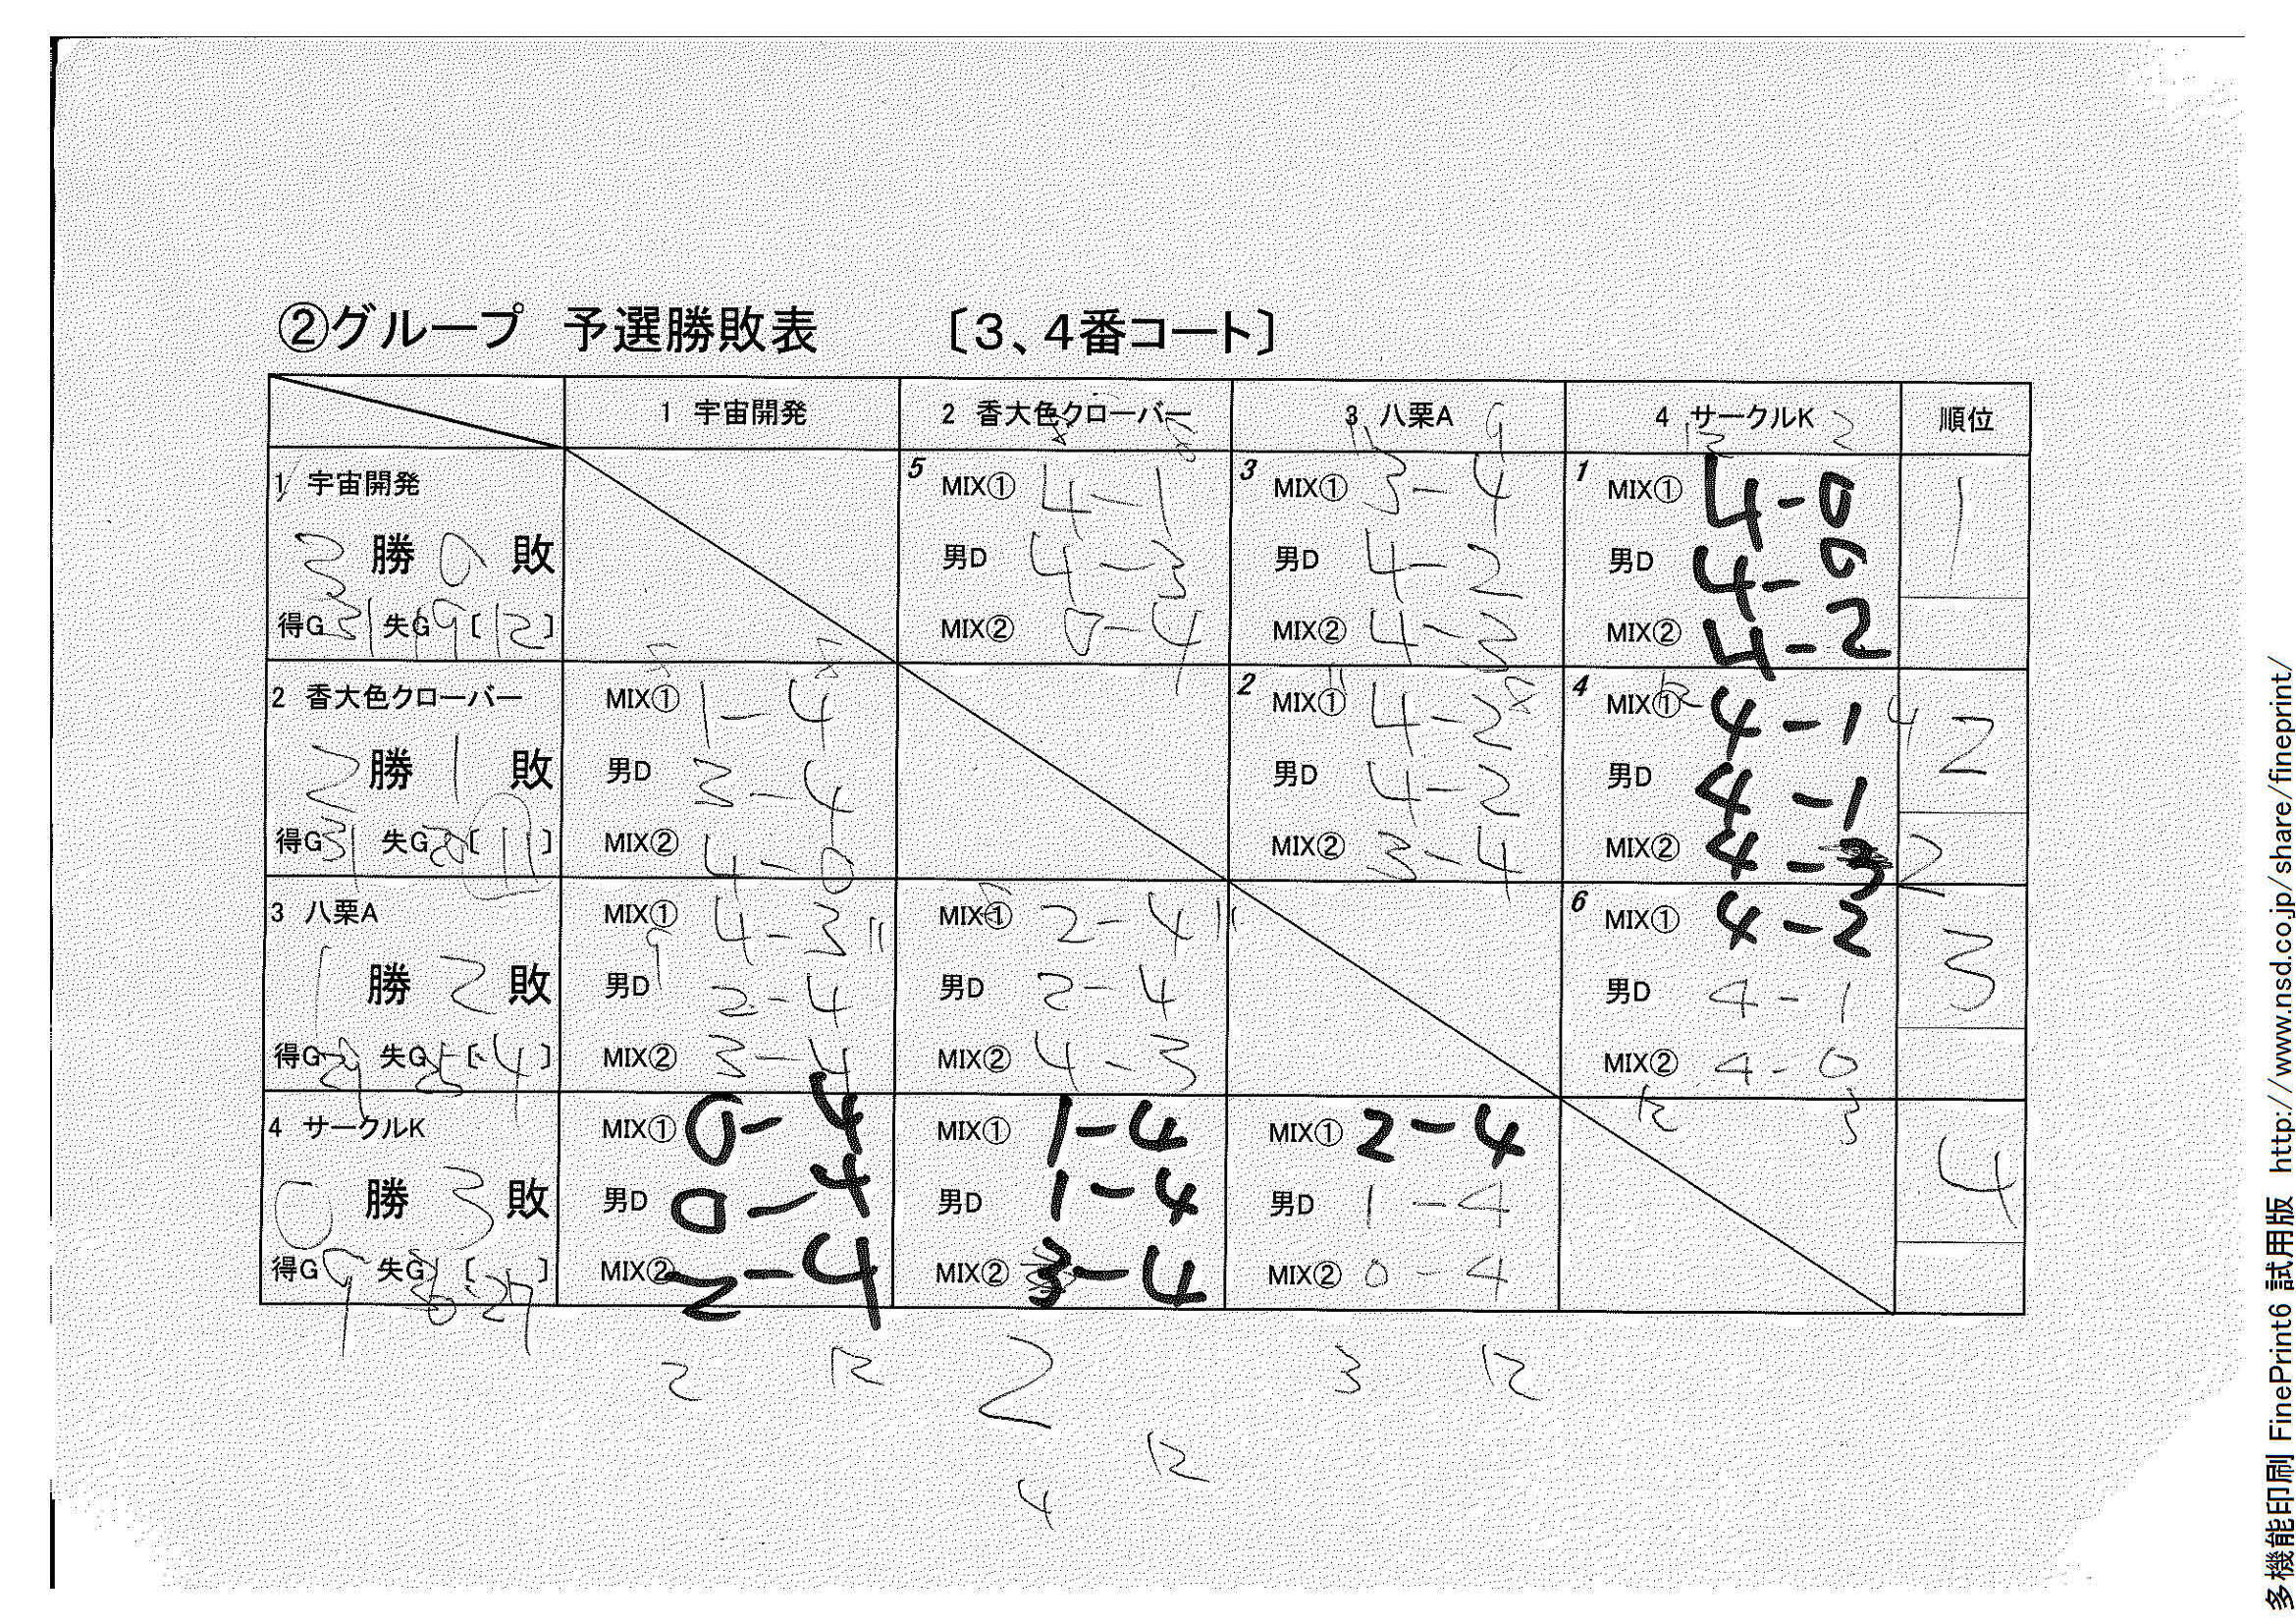 ②グループ 予選勝敗表 〔3、4番コート〕
1 宇宙開発 2 香大色クローバー 3 八栗A 4 サークルK 順位
8 8 11 9 12 2
1 宇宙開発 5 MIX① 4-1 3 MIX① 3-4 1 MIX① 4-0 1
3 勝 0 敗 男D 4-3 男D 4-2 男D 4-0
得G 31 失G 19 〔12〕 MIX② 0-4 MIX② 4-3 MIX② 4-2
8 8 11 8 12 4
2 香大色クローバー MIX① 1-4 2 MIX① 4-2 4 MIX① 4-1 2
2 勝 1 敗 男D 3-4 男D 4-2 男D 4-1
得G 31 失G 20 〔11〕 MIX② 4-0 MIX② 3-4 MIX② 4-3 2
3 八栗A MIX① 4-3 11 MIX① 2-4 11 6 MIX① 4-2 3
1 勝 2 敗 男D 2-4 男D 2-4 男D 4-1
得G 29 失G 25 〔4〕 MIX② 3-4 MIX② 4-3 MIX② 4-0
12 3
4 サークルK MIX① 0-4 MIX① 1-4 MIX① 2-4 4
0 勝 3 敗 男D 0-4 男D 1-4 男D 1-4
得G 9 失G 36 〔-27〕 MIX② 2-4 MIX② 3-4 MIX② 0-4
2 12 2 3 12
12
4
多機能印刷 FinePrint6 試用版 http://www.nsd.co.jp/share/fineprint/